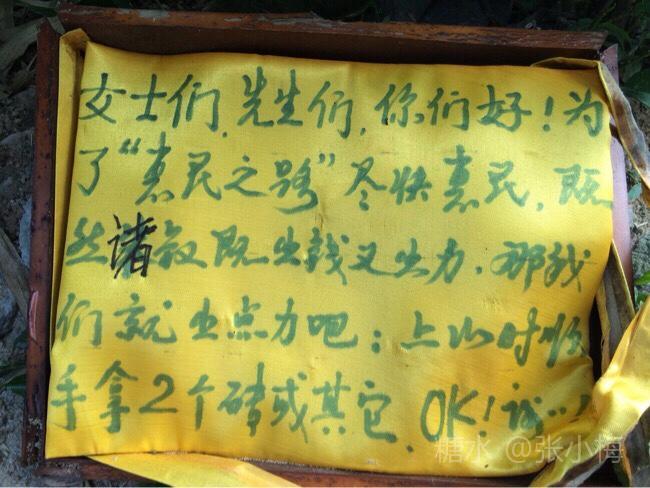 女士们,先生们,你们好!为
了“惠民之路”尽快惠民,既
然诸叙既出钱又出力,那我
们就出点力吧:上山时顺
手拿2个砖或其它,OK!谢…!
糖水 @张小梅